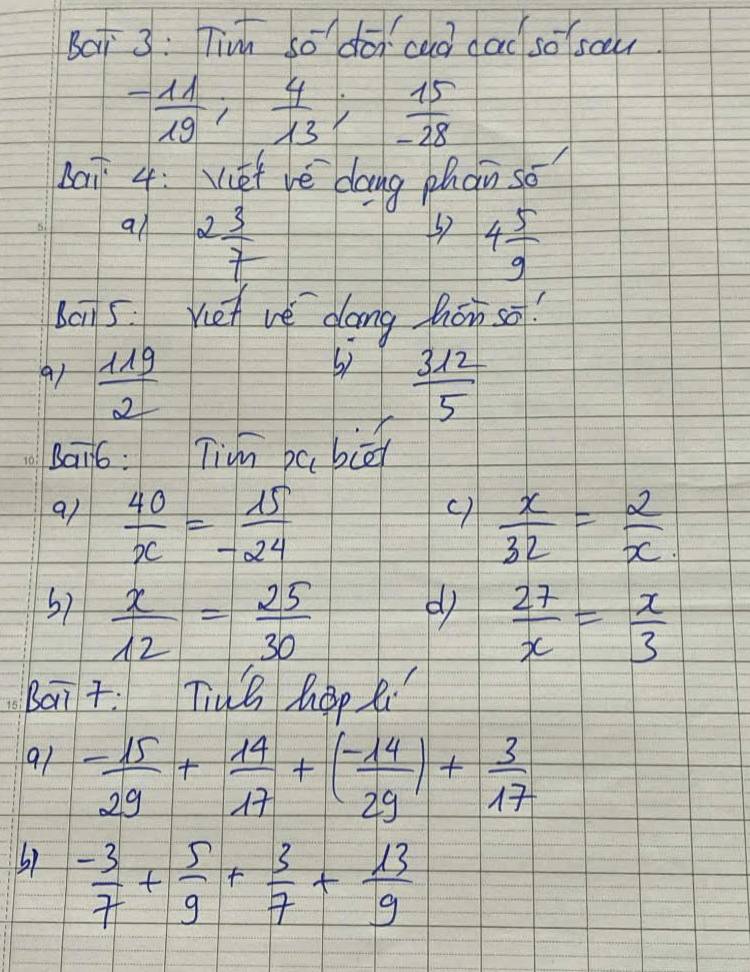 Bài 3: Tìm số đối của các số sau.
-11/19; 4/13; 15/-28
Bài 4: Viết về dạng phân số
a) 2 3/7 b) 4 5/9
Bài 5: Viết về dạng hỗn số:
a) 119/2 b) 312/5
Bài 6: Tìm x, biết
a) 40/x = 15/-24 c) x/32 = 2/x.
b) x/12 = 25/30 d) 27/x = x/3
Bài 7: Tính hợp lí
a) -15/29 + 14/17 + (-14/29) + 3/17
b) -3/7 + 5/9 + 3/7 + 13/9
5
10
15